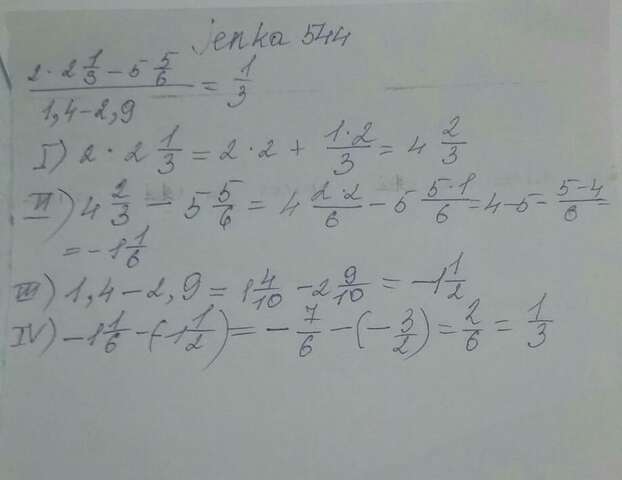 jenka 544
(2·2 1/3 − 5 5/6)/(1,4−2,9) = 1/3
I) 2·2 1/3 = 2·2 + (1·2)/3 = 4 2/3
II) 4 2/3 − 5 5/6 = 4 (2·2)/6 − 5 (5·1)/6 = 4−5− (5−4)/6 =
= −1 1/6
III) 1,4−2,9 = 1 4/10 − 2 9/10 = −1 1/2
IV) −1 1/6 −(−1 1/2) = − 7/6 −(− 3/2) = 2/6 = 1/3